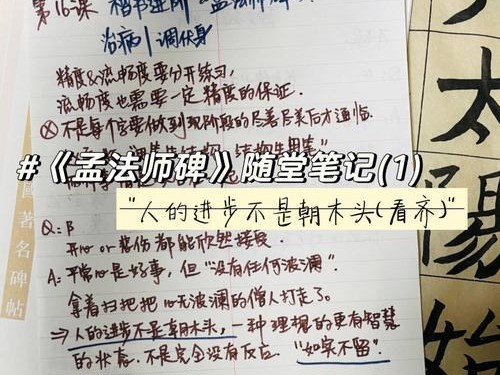 第16课 楷书进阶《孟法师碑》
治病|调伏身
精度&流畅度要分开练习，
流畅度也需要一定精度的保证.
不是每个字要做到现阶段的尽善尽美后才通临.
#《孟法师碑》随堂笔记(1)
"人的进步不是朝木头(看齐)"
Q:
开心 or 悲伤都能欣然接受
A: 平常心是好事，但"没有任何波澜".
拿着扫把把心无波澜的僧人打走了.
⇒人的进步不是朝木头，一种理想的更有智慧
的状态. 不是完全没有反应. "如实不留".
國著名碑帖
太
陽
始